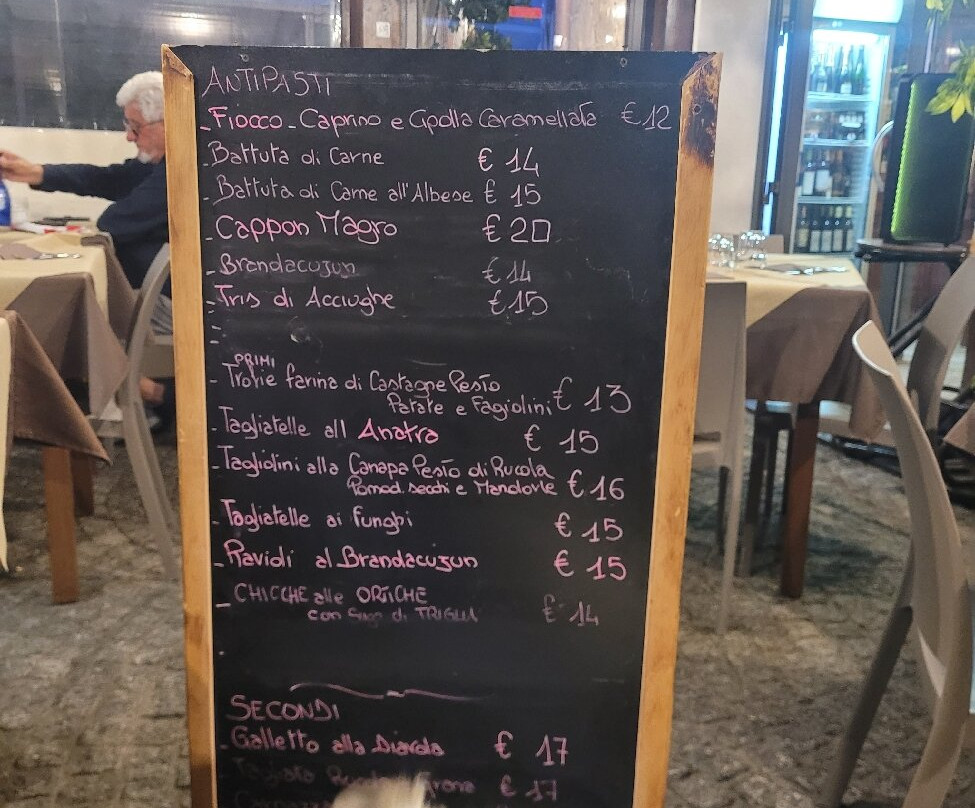 ANTIPASTI
- Fiocco - Caprino e Cipolla Caramellata €12
- Battuta di Carne € 14
- Battuta di Carne all'Albese € 15
- Cappon Magro € 20
- Brandacujun € 14
- Tris di Acciughe € 15
PRIMI
- Trofie farina di Castagne Pesto
Patate e Fagiolini € 13
- Tagliatelle all Anatra € 15
- Tagliolini alla Canapa Pesto di Rucola
Pomod. secchi e Mandorle € 16
- Tagliatelle ai funghi € 15
- Ravioli al Brandacujun € 15
- CHICCHE alle ORTICHE
con Sugo di TRIGLIA € 14
SECONDI
- Galletto alla Diavola € 17
- Tagliata € 17